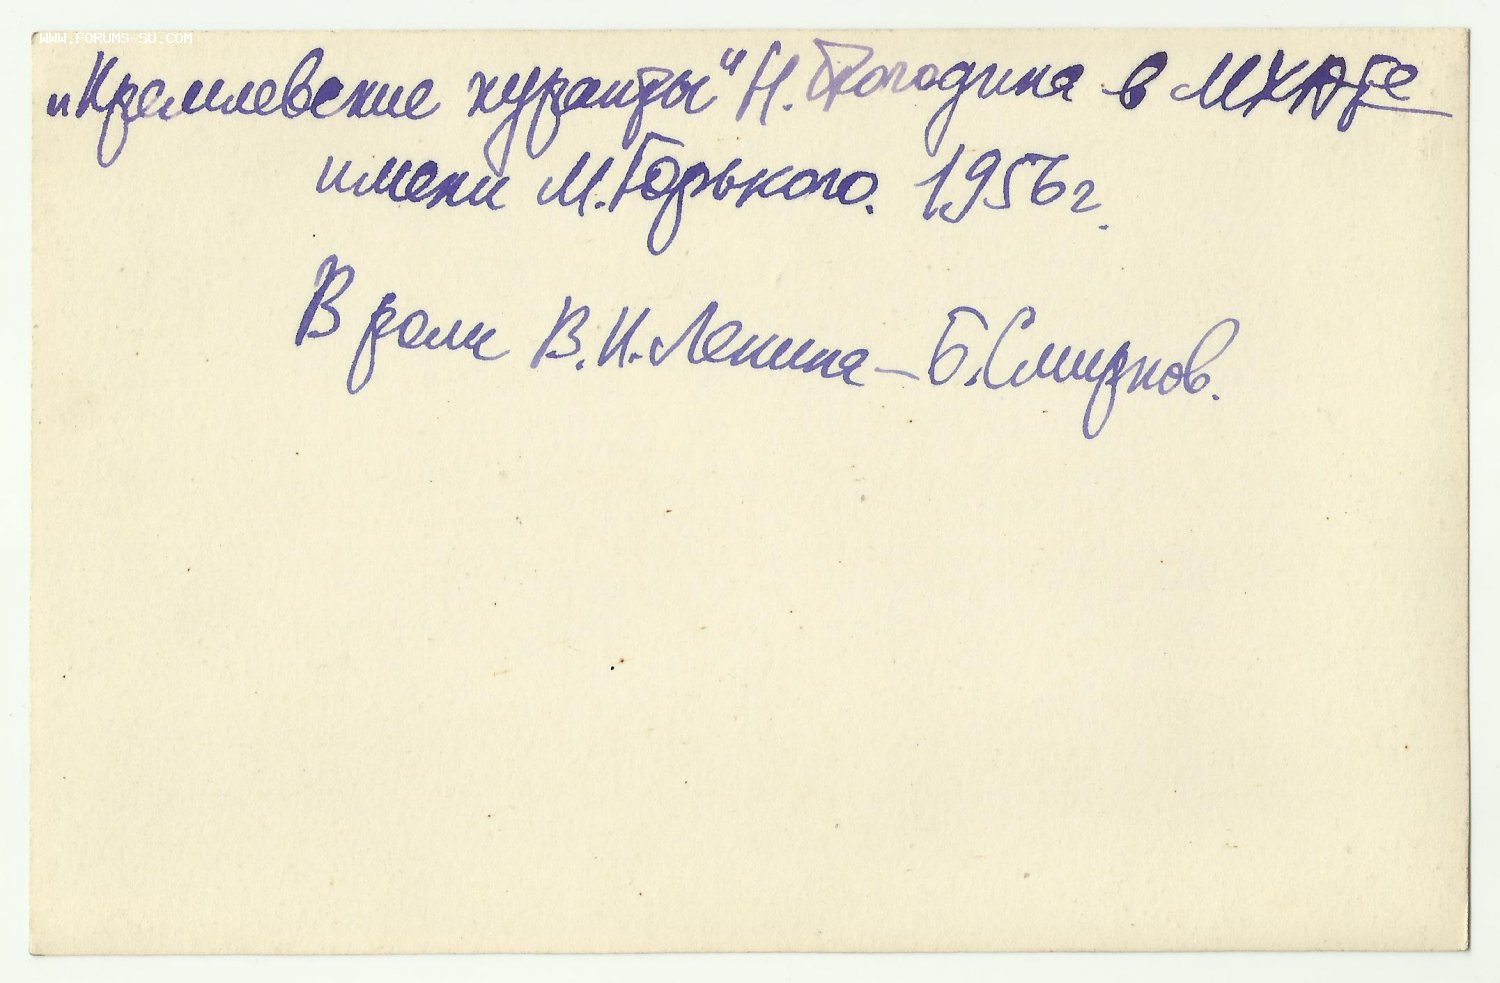 WWW.FORUMS-SU.COM
„Кремлевские куранты" Н. Погодина в МХАТе
имени М. Горького. 1956 г.
В роли В. И. Ленина – Б. Смирнов.